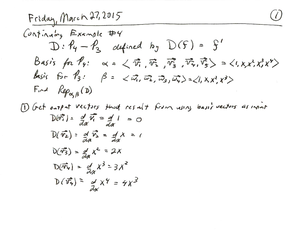 Friday, March 27, 2015 ①
Continuing Example #4
D: P₄ → P₃ defined by D(f) = f'
Basis for P₄: α = <v⃗₁, v⃗₂, v⃗₃, v⃗₄, v⃗₅> = <1, x, x², x³, x⁴>
Basis for P₃: β = <w⃗₁, w⃗₂, w⃗₃, w⃗₄> = <1, x, x², x³>
Find Rep α,β (D)
① Get output vectors that result from using basis vectors as input
D(v⃗₁) = d/dx v⃗₁ = d/dx 1 = 0
D(v⃗₂) = d/dx v⃗₂ = d/dx x = 1
D(v⃗₃) = d/dx x² = 2x
D(v⃗₄) = d/dx x³ = 3x²
D(v⃗₅) = d/dx x⁴ = 4x³